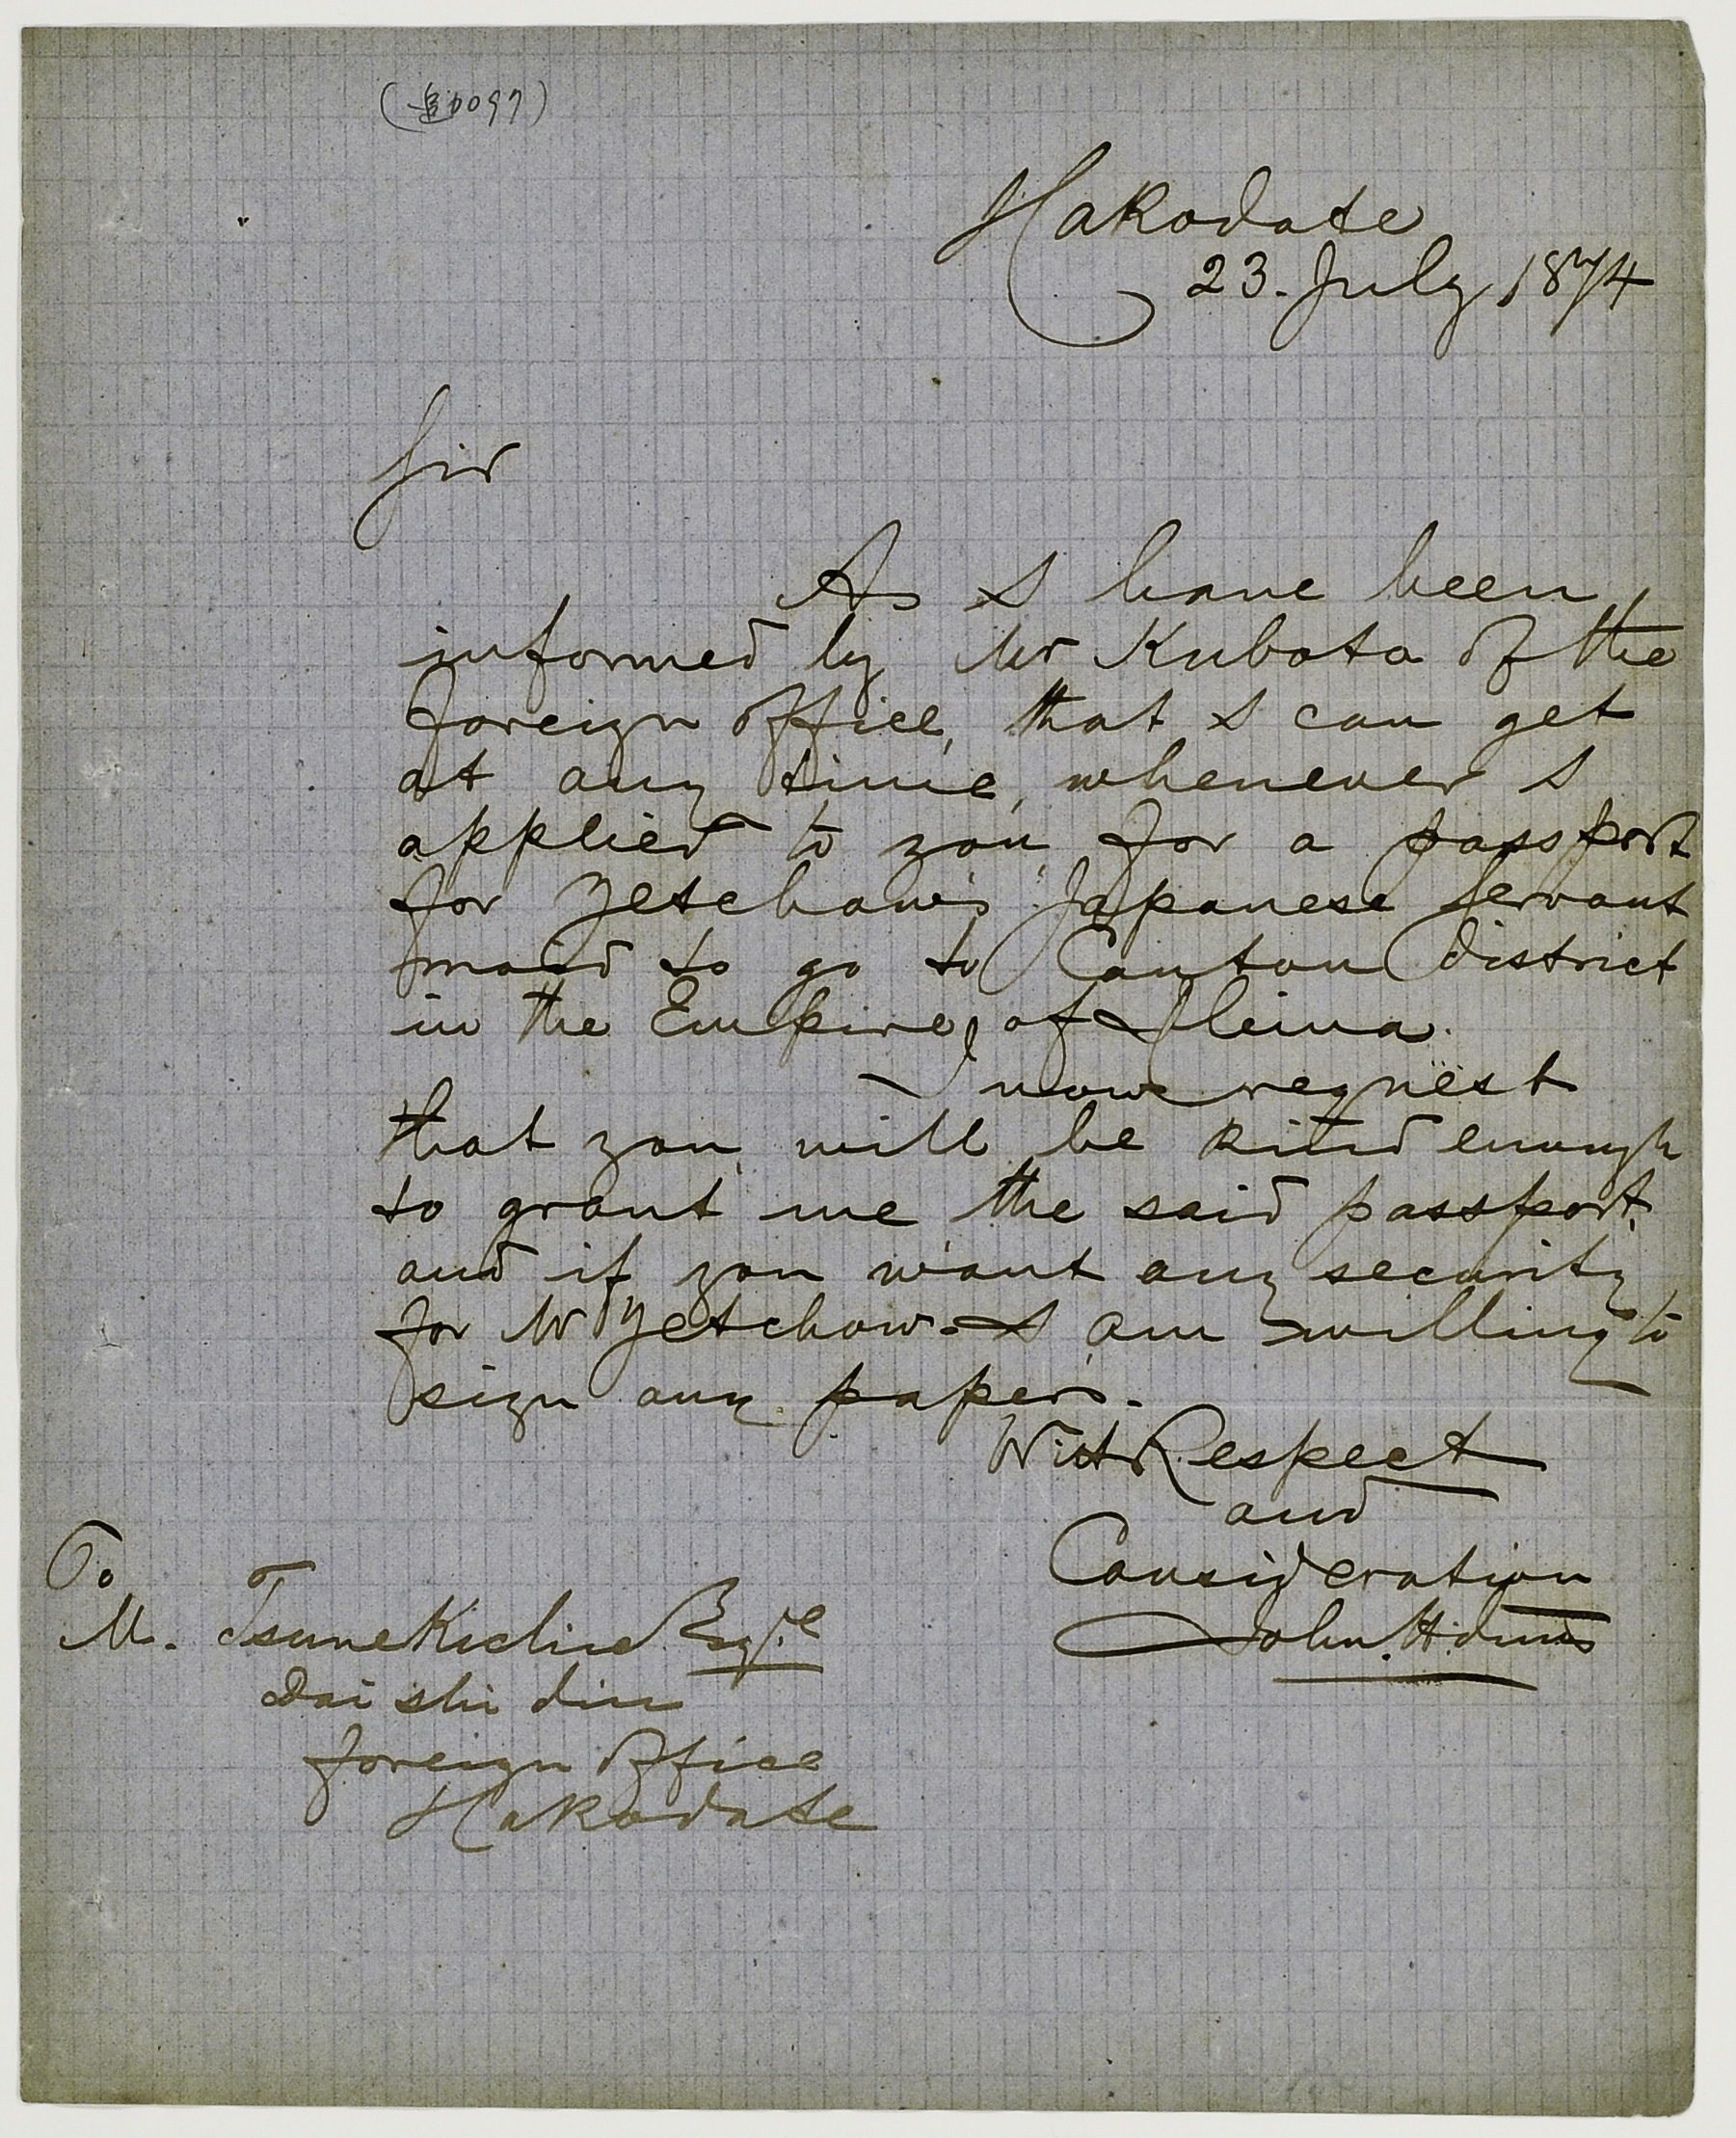 0097
Hakodate
23. July 1874
Sir
As I have been
informed by Mr Kubota of the
foreign office, that I can get
at any time, whenever I
applied to you, for a passport
for Yetchow's Japanese servant
maid to go to Canton district
in the Empire of China.
I now request
that you will be kind enough
to grant me the said passport,
and if you want any security
for Mr Yetchow - I am willing to
sign any papers.
With Respect
and
Consideration
John. H.
To
M. Tsunekichie Esqre
Dai shi din
foreign office
Hakodate